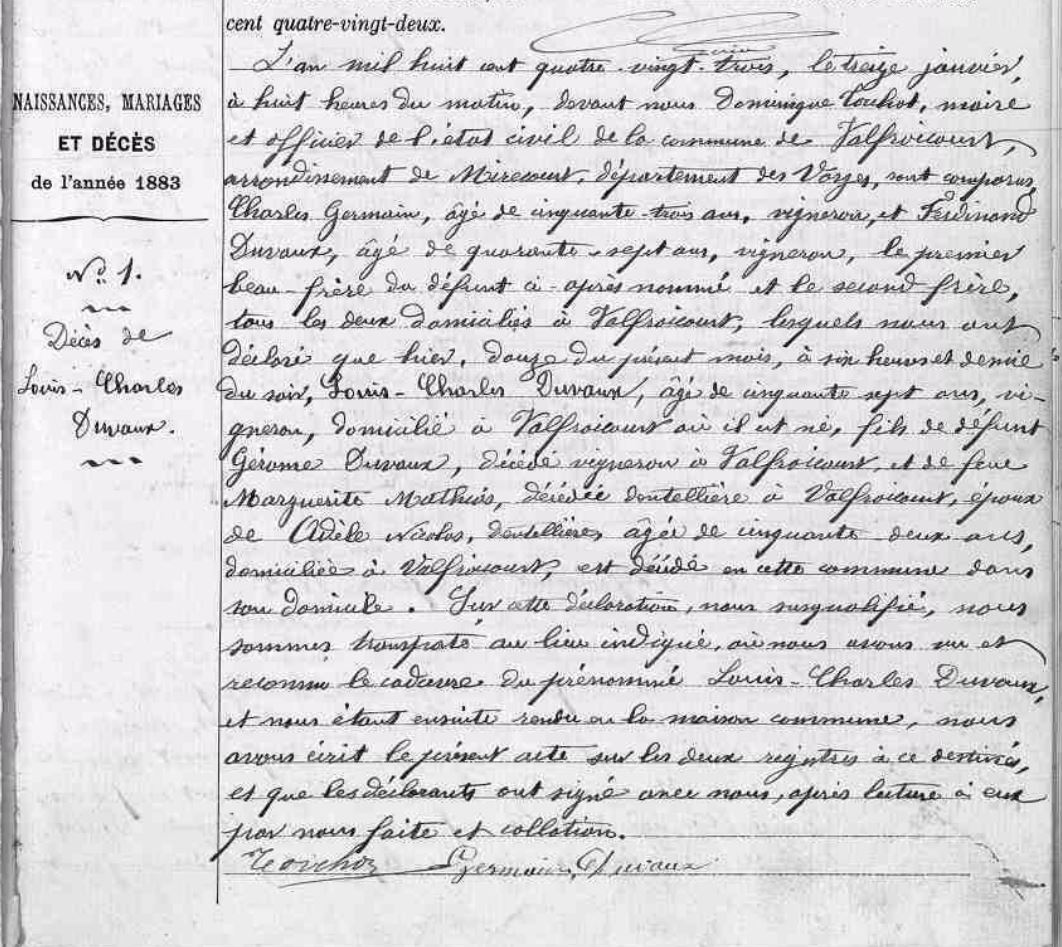 cent quatre-vingt-deux.
L'an mil huit cent quatre-vingt-trois, le treize janvier,
à huit heures du matin, devant nous Dominique Touchot, maire
et officier de l'état civil de la commune de Valfroicourt,
arrondissement de Mirecourt, département des Vosges, sont comparus,
Charles Germain, âgé de cinquante-trois ans, vigneron, et Ferdinand
Duvaux, âgé de quarante-sept ans, vigneron, le premier
beau-frère du défunt ci-après nommé et le second frère,
tous les deux domiciliés à Valfroicourt, lesquels nous ont
déclaré que hier, douze du présent mois, à six heures et demie
du soir, Louis-Charles Duvaux, âgé de cinquante sept ans, vi-
gneron, domicilié à Valfroicourt où il est né, fils de défunt
Gérome Duvaux, décédé vigneron à Valfroicourt, et de feue
Marguerite Mathias, décédée dentellière à Valfroicourt, époux
de Adèle Nicolas, dentellière, âgée de cinquante deux ans,
domiciliée à Valfroicourt, est décédé en cette commune dans
son domicile. Sur cette déclaration, nous susqualifié, nous
sommes transporté au lieu indiqué, où nous avons vu et
reconnu le cadavre du prénommé Louis-Charles Duvaux,
et nous étant ensuite rendu en la maison commune, nous
avons écrit le présent acte sur les deux registres à ce destinés,
et que les déclarants ont signé avec nous, après lecture à eux
par nous faite et collation.
Touchot Germain Duvaux
NAISSANCES, MARIAGES
ET DÉCÈS
de l'année 1883
No 1.
Décès de
Louis-Charles
Duvaux.